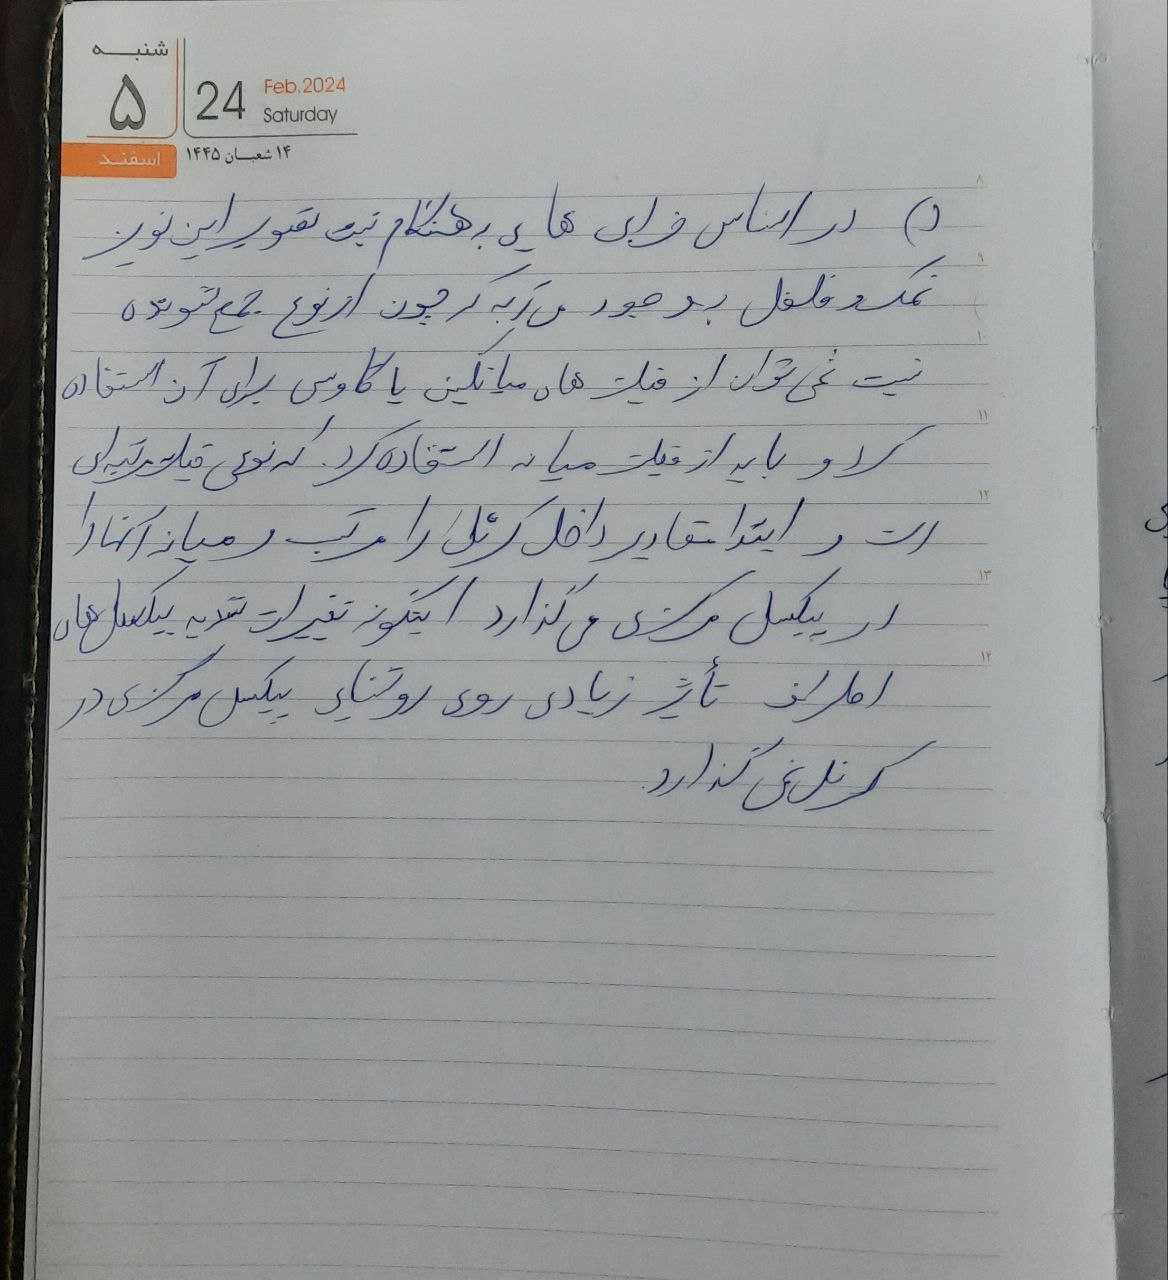 شنبه
۵
اسفند
24 Feb.2024
Saturday
۱۴ شعبان ۱۴۴۵
۸
در اساس خرابی هایی به هنگام ثبت تصویر این نویز
۹
نمک و فلفل بوجود می آید که چون از نوع جمع شونده
۱۰
نیست نمی توان از فیلتر های میانگین یا گاوسی برای آن استفاده
۱۱
کرد و باید از فیلتر میانه استفاده کرد. که نوعی فیلتر مرتبه ای
۱۲
است و ابتدا مقادیر داخل کرنل را مرتب و میانه آنها را
۱۳
در پیکسل مرکزی می گذارد اینگونه تغییرات شدید پیکسل های
۱۴
اطراف تأثیر زیادی روی روشنایی پیکسل مرکزی در
کرنل نمی گذارد.